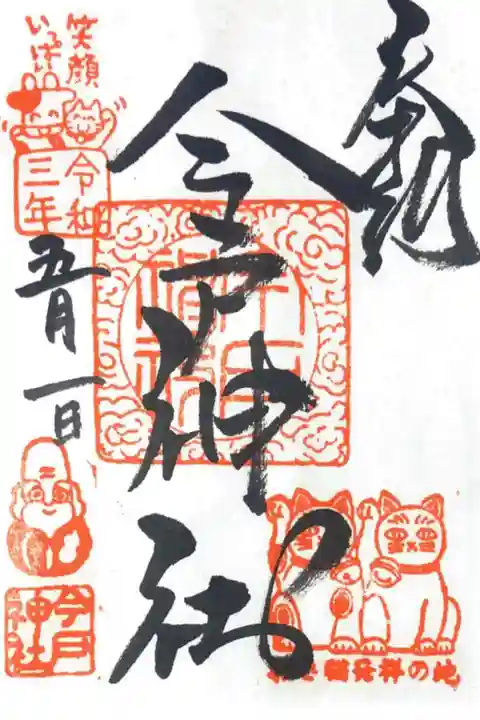 奉拝
今戸神社
笑顔
いっぱい
令和
三年
五月一日
今戸
神社
招き猫発祥の地